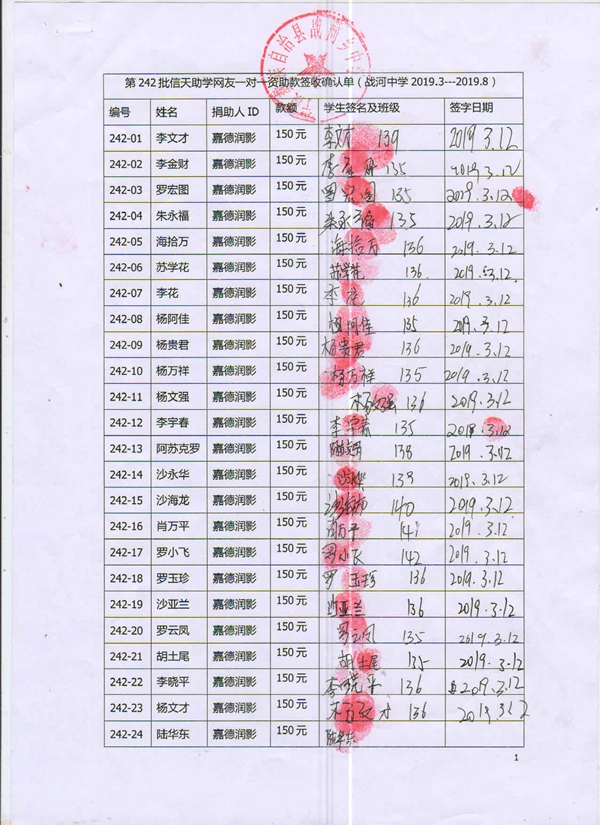 自治县战河乡中
第242批信天助学网友一对一资助款签收确认单（战河中学2019.3---2019.8）
编号 姓名 捐助人ID 款额 学生签名及班级 签字日期
242-01 李文才 嘉德润影 150元 李文才 139 2019.3.12
242-02 李金财 嘉德润影 150元 李金财 135 2019.3.12
242-03 罗宏图 嘉德润影 150元 罗宏图 135 2019.3.12
242-04 朱永福 嘉德润影 150元 朱永福 135 2019.3.12
242-05 海拾万 嘉德润影 150元 海拾万 136 2019.3.12
242-06 苏学花 嘉德润影 150元 苏学花 136 2019.3.12
242-07 李花 嘉德润影 150元 李花 136 2019.3.12
242-08 杨阿佳 嘉德润影 150元 杨阿佳 135 2019.3.12
242-09 杨贵君 嘉德润影 150元 杨贵君 136 2019.3.12
242-10 杨万祥 嘉德润影 150元 杨万祥 135 2019.3.12
242-11 杨文强 嘉德润影 150元 杨文强 136 2019.3.12
242-12 李宇春 嘉德润影 150元 李宇春 135 2018.3.12
242-13 阿苏克罗 嘉德润影 150元 138 2019.3.12
242-14 沙永华 嘉德润影 150元 沙永华 139 2019.3.12
242-15 沙海龙 嘉德润影 150元 140 2019.3.12
242-16 肖万平 嘉德润影 150元 肖万平 141 2019.3.12
242-17 罗小飞 嘉德润影 150元 罗小飞 142 2019.3.12
242-18 罗玉珍 嘉德润影 150元 罗玉珍 136 2019.3.12
242-19 沙亚兰 嘉德润影 150元 沙亚兰 136 2019.3.12
242-20 罗云凤 嘉德润影 150元 罗云凤 135 2019.3.12
242-21 胡土尾 嘉德润影 150元 胡土尾 135 2019.3.12
242-22 李晓平 嘉德润影 150元 李晓平 136 2019.3.12
242-23 杨文才 嘉德润影 150元 杨文才 136 2019.3.12
242-24 陆华东 嘉德润影 150元 陆华东
1